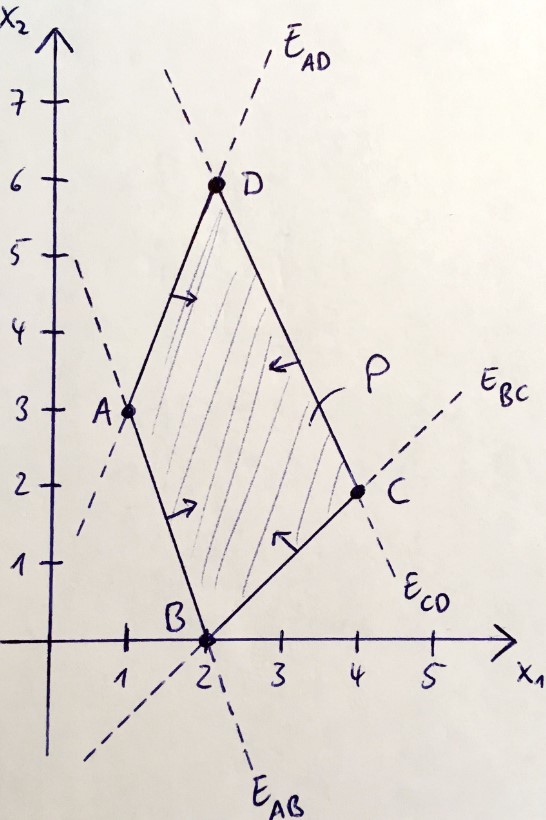 x₂
E_AD
7
6
D
5
4
P
A
3
E_BC
2
C
1
E_CD
B
1 2 3 4 5
x₁
E_AB